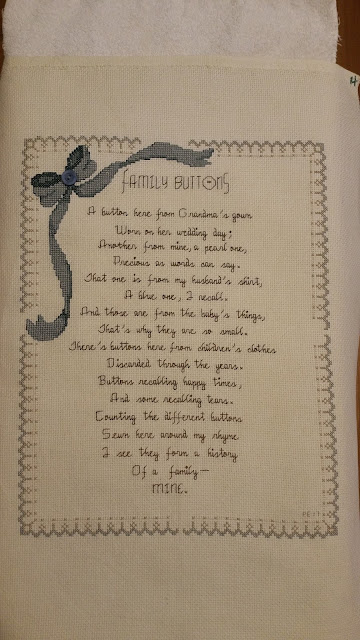 FAMILY BUTTONS
A button here from Grandma's gown
Worn on her wedding day;
Another from mine, a pearl one,
Precious as words can say.
That one is from my husband's shirt,
A blue one, I recall.
And those are from the baby's things,
That's why they are so small.
There's buttons here from children's clothes
Discarded through the years.
Buttons recalling happy times,
And some recalling tears.
Counting the different buttons
Sewn here around my rhyme
I see they form a history
Of a family—
MINE.